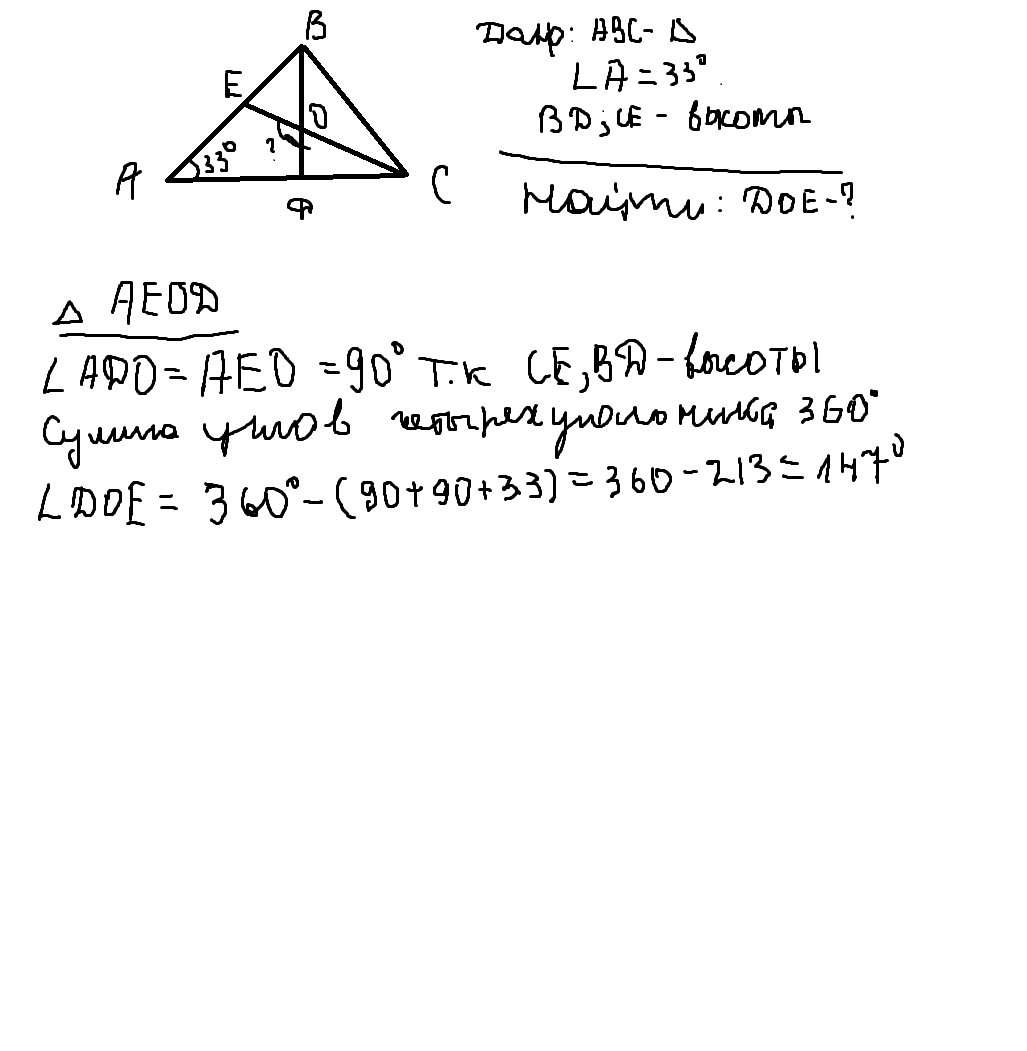 B
E
O
33°
?
A
D
C
Дано: ABC - Δ
∠A = 33°
BD; CE - высоты
Найти: DOE - ?
Δ AEOD
∠ADO = AEO = 90° т.к CE, BD - высоты
Сумма углов четырехугольника 360°
∠DOE = 360° - (90 + 90 + 33) = 360 - 213 = 147°